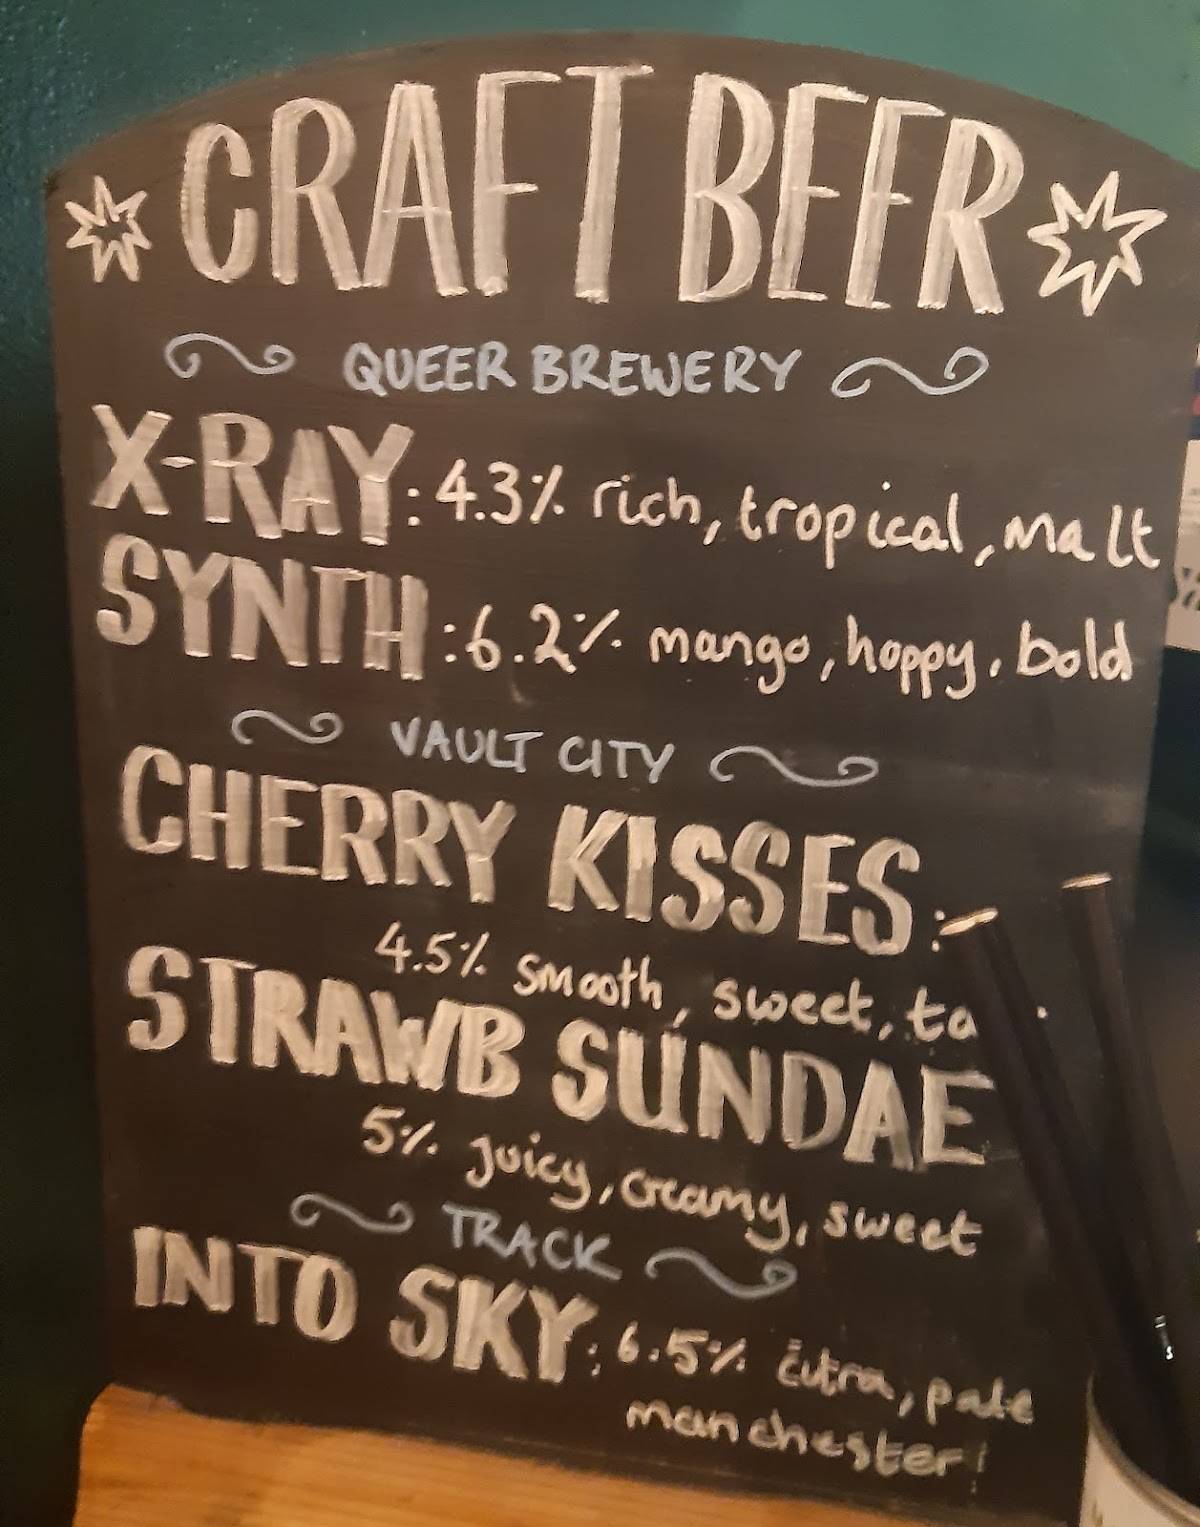 CRAFT BEER
QUEER BREWERY
X-RAY: 4.3% rich, tropical, malt
SYNTH: 6.2% mango, hoppy, bold
VAULT CITY
CHERRY KISSES:
4.5% smooth, sweet,
STRAWB SUNDAE
5% juicy, creamy, sweet
TRACK
INTO SKY: 6.5% citra, pale
manchester!